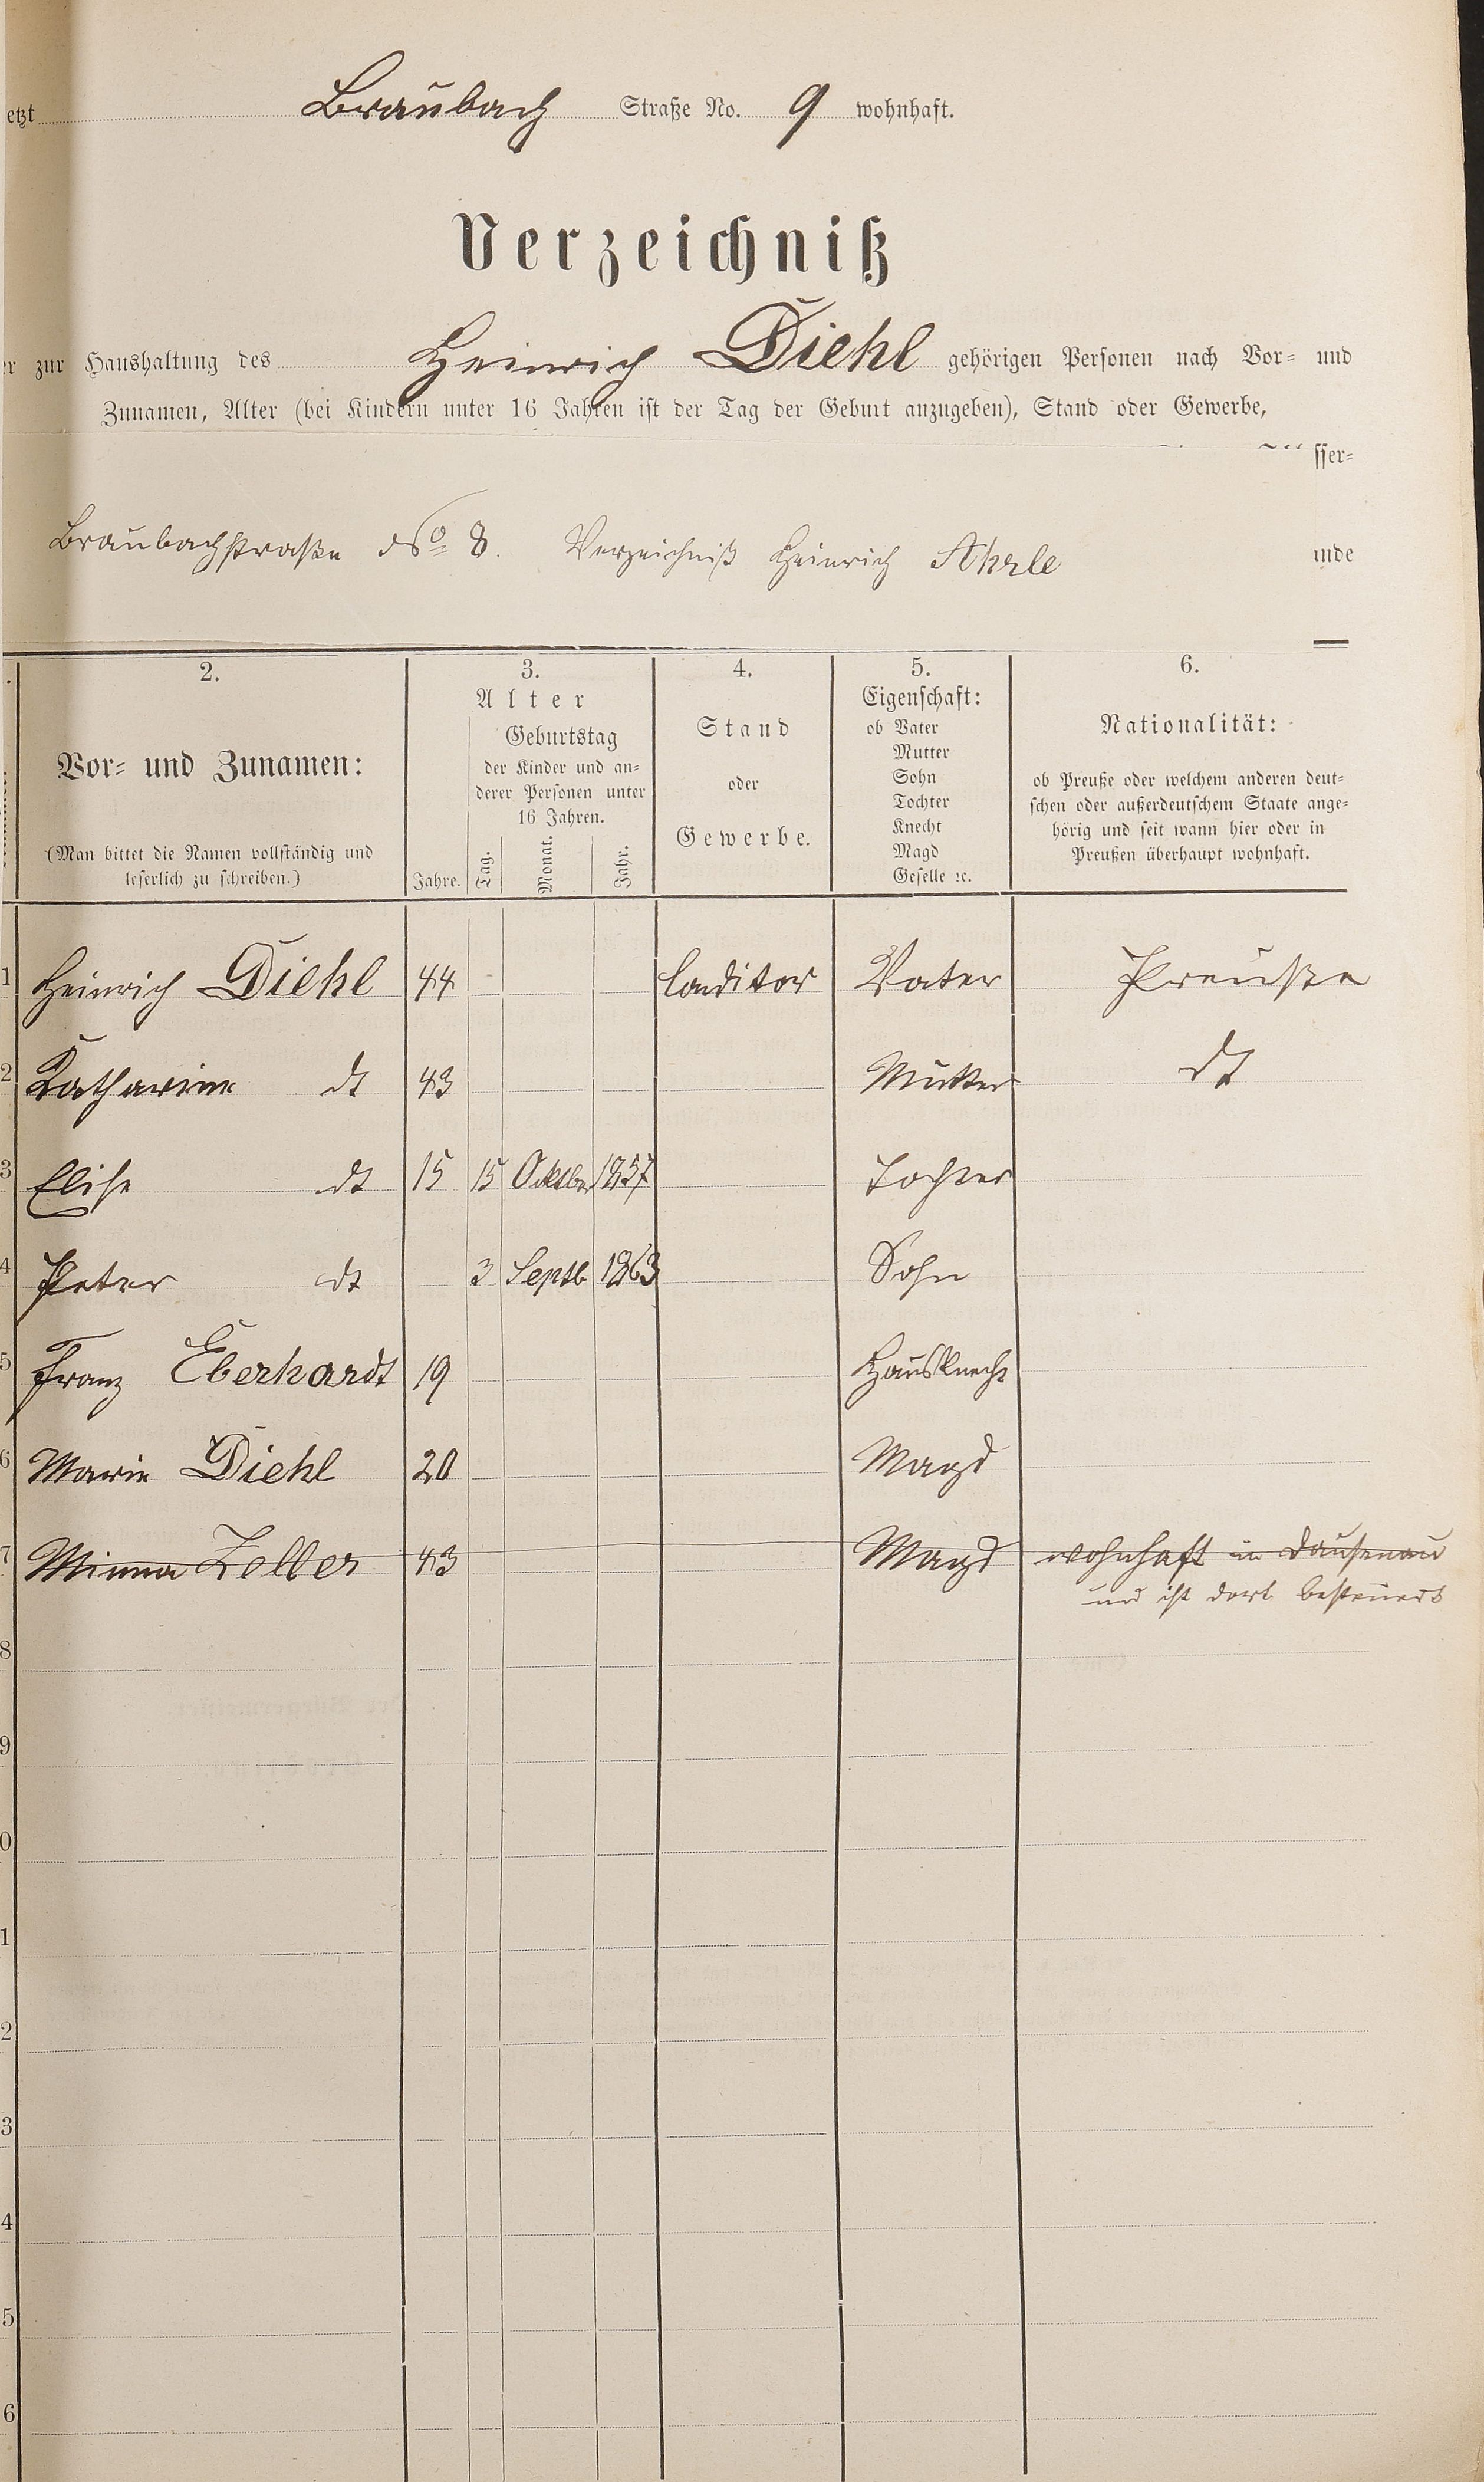 etzt Braubach Straße No. 9 wohnhaft.
Verzeichniß
er zur Haushaltung des Heinrich Diehl gehörigen Personen nach Vor= und
Zunamen, Alter (bei Kindern unter 16 Jahren ist der Tag der Geburt anzugeben), Stand oder Gewerbe,
sser=
Braubachstraße No 8. Verzeichniß Heinrich Ahrle
inde
2. 3. 4. 5. 6.
Alter
Eigenschaft:
Geburtstag Stand ob Vater Nationalität:
Vor= und Zunamen: der Kinder und an= Mutter
derer Personen unter oder Sohn ob Preuße oder welchem anderen deut=
16 Jahren. Tochter schen oder außerdeutschem Staate ange=
Gewerbe. Knecht hörig und seit wann hier oder in
(Man bittet die Namen vollständig und Magd Preußen überhaupt wohnhaft.
leserlich zu schreiben.) Jahre. Tag. Monat. Jahr. Geselle ꝛc.
1 Heinrich Diehl 44 Conditor Vater Preuße
2 Katharine dt 43 Mutter dt
3 Elise dt 15 15 Oktober 1857 Tochter
4 Peter dt 3 Septb 1863 Sohn
5 Franz Eberhardt 19 Hausknecht
6 Marie Diehl 20 Magd
7 Minna Zelber 43 Magd wohnhaft in Dausenau
und ist dort besteuert
8
9
0
1
2
3
4
5
6